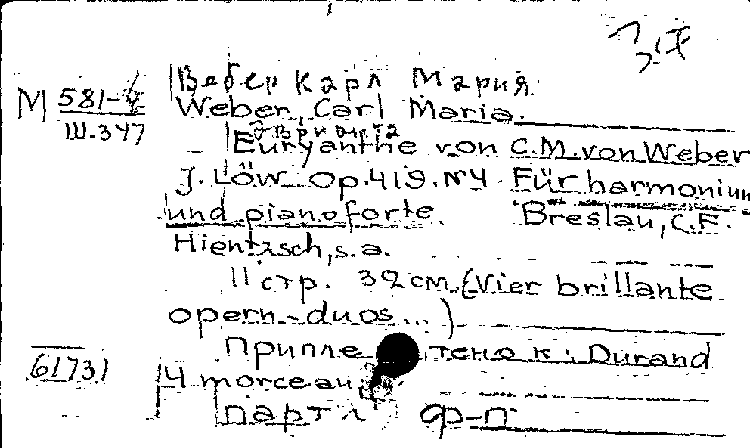 М 581-4
III-347
Вебер Карл Мария
Weber, Carl Maria.
Эврианта
Euryanthe von C.M. von Weber
J. Löw Op. 419. №4 Für harmonium
und pianoforte. Breslau, C.F.
Hientzsch, s.a.
11 стр. 32 см. (Vier brillante
opern-duos...)
Припле тено к: Durand
61731
4 morceaux
парт л ф-п